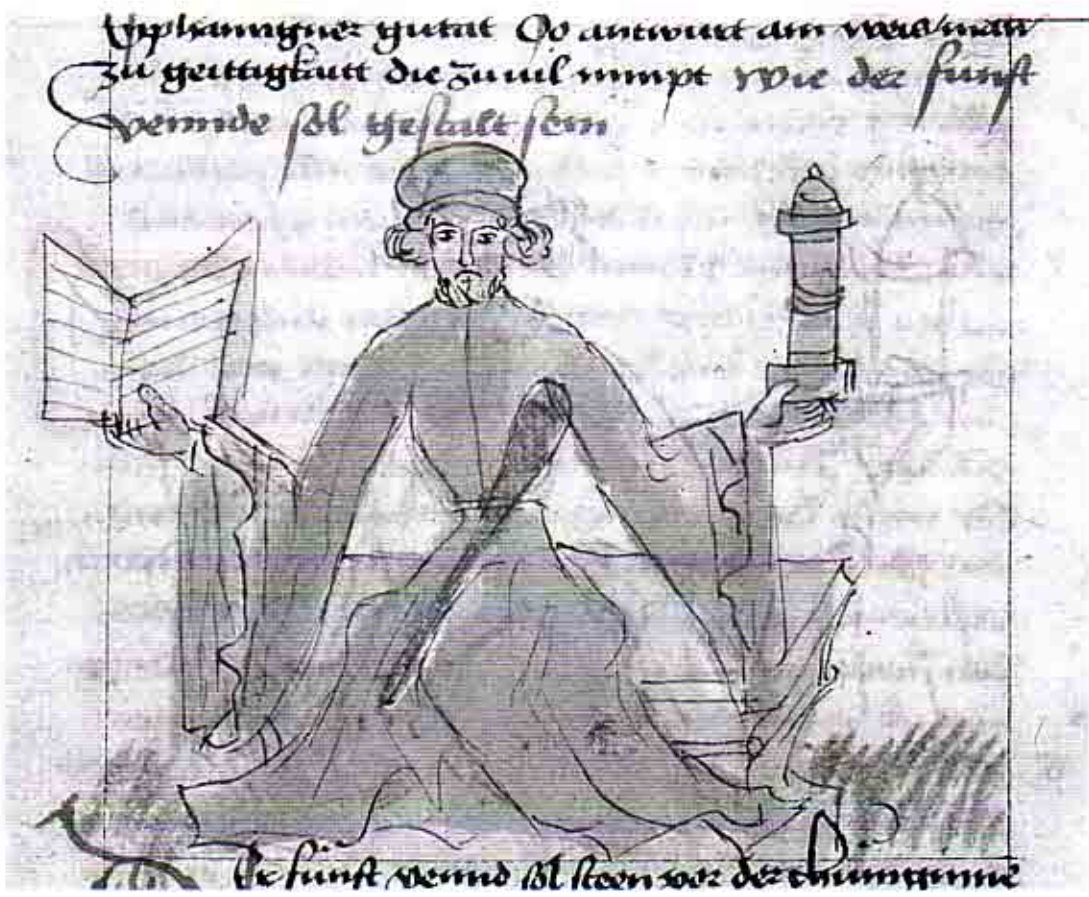 gutat So antwurt ain weis man
zu geittigkaitt die zu uil nimpt wie der funft
vennde sol gestalt sein
Er funft vennd sol steen vor der chunniginne